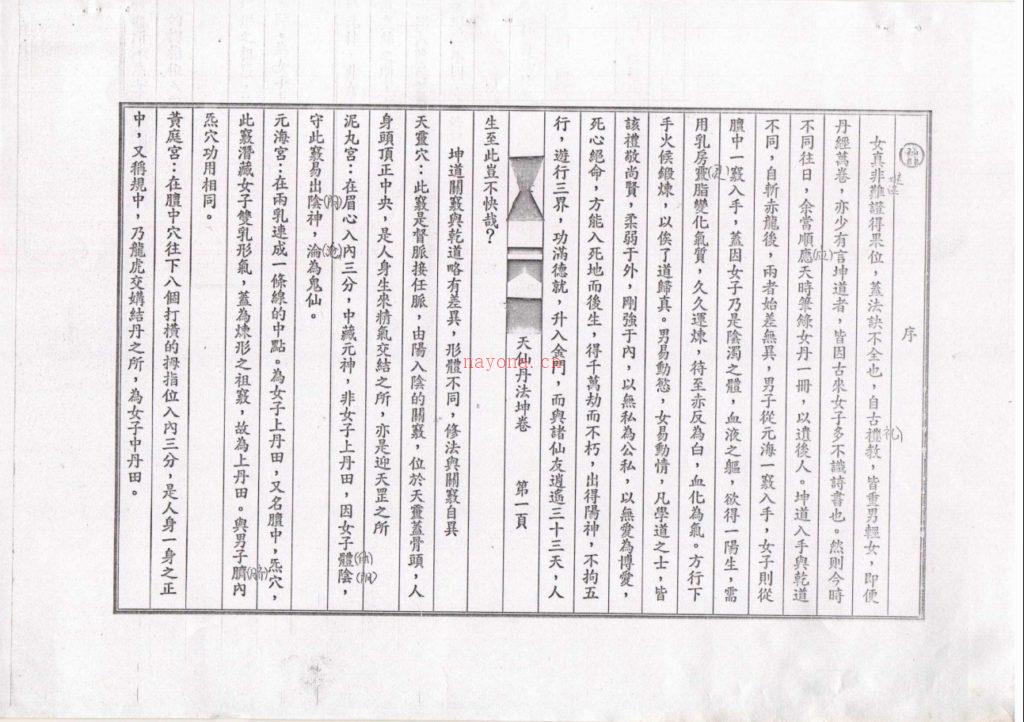 序
女真非難證得果位，蓋法訣不全也，自古禮教，皆重男輕女，即便
丹經萬卷，亦少有言坤道者，皆因古來女子多不識詩書也。然則今時
不同往日，余當順應天時筆錄女丹一冊，以遺後人。坤道入手與乾道
不同，自斬赤龍後，兩者始差無異，男子從元海一竅入手，女子則從
膻中一竅入手，蓋因女子乃是陰濁之體，血液之軀，欲得一陽生，需
用乳房靈脂變化氣質，久久運煉，待至赤反為白，血化為氣。方行下
手火候緞煉，以俟了道歸真。男易動慾，女易動情，凡學道之士，皆
該禮敬尚賢，柔弱于外，剛強于內，以無私為公私，以無愛為博愛，
死心絕命，方能入死地而後生，得千萬劫而不朽，出得陽神，不拘五
行，遊行三界，功滿德就，升入金門，而與諸仙友逍遙三十三天，人
天仙丹法坤卷　第一頁
生至此豈不快哉？
坤道關竅與乾道略有差異，形體不同，修法與關竅自異
天靈穴：此竅是督脈接任脈，由陽入陰的關竅，位於天靈蓋骨頭，人
身頭頂正中央，是人身生來精氣交結之所，亦是迎天罡之所
泥丸宮：在眉心入內三分，中藏元神，非女子上丹田，因女子體陰，
守此竅易出陰神，淪為鬼仙。
元海宮：在兩乳連成一條線的中點。為女子上丹田，又名膻中，炁穴，
此竅潛藏女子雙乳形氣，蓋為煉形之祖竅，故為上丹田。與男子臍內
炁穴功用相同。
黃庭宮：在膻中穴往下八個打橫的拇指位入內三分，是人身一身之正
中，又稱規中，乃龍虎交媾結丹之所，為女子中丹田。
(应)
(礼)
(灵)
(阴)
(沦)
(体)
(阴)
(脐)
nayona.cn